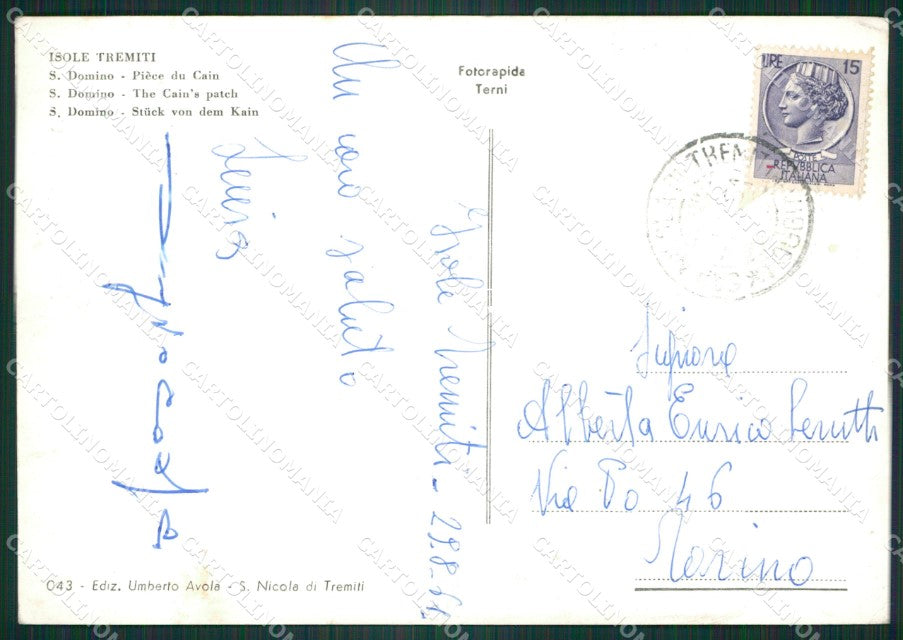 ISOLE TREMITI
S. Domino - Pièce du Cain
S. Domino - The Cain's patch
S. Domino - Stück von dem Kain
Fotorapida
Terni
LIRE 15
POSTE
REPVBBLICA
ITALIANA
TREMITI
Isole Tremiti - 29.8.61
Un caro saluto
Signora
Alberta Enrico
Via Po 46
Torino
043 - Ediz. Umberto Avola - S. Nicola di Tremiti
CARTOLINOMANIA